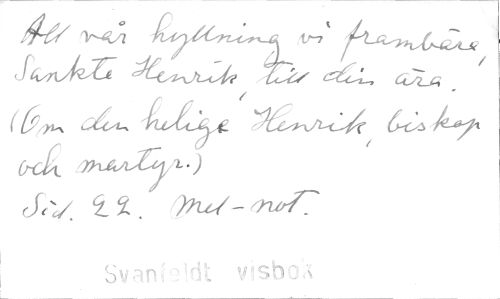 All vår hyllning vi frambära,
Sankte Henrik, till din ära.
(Om den helige Henrik, biskop
och martyr.)
Sid. 22. Mel-not.
Svanfeldt visbok